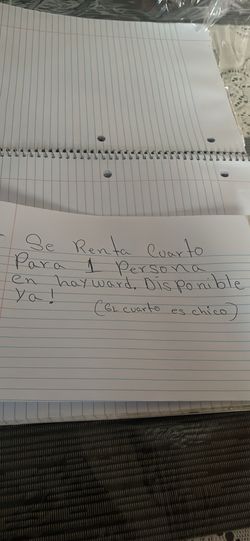 Se Renta Cuarto
Para 1 Persona
en hayward. Disponible
Ya!
(EL cuarto es chico)